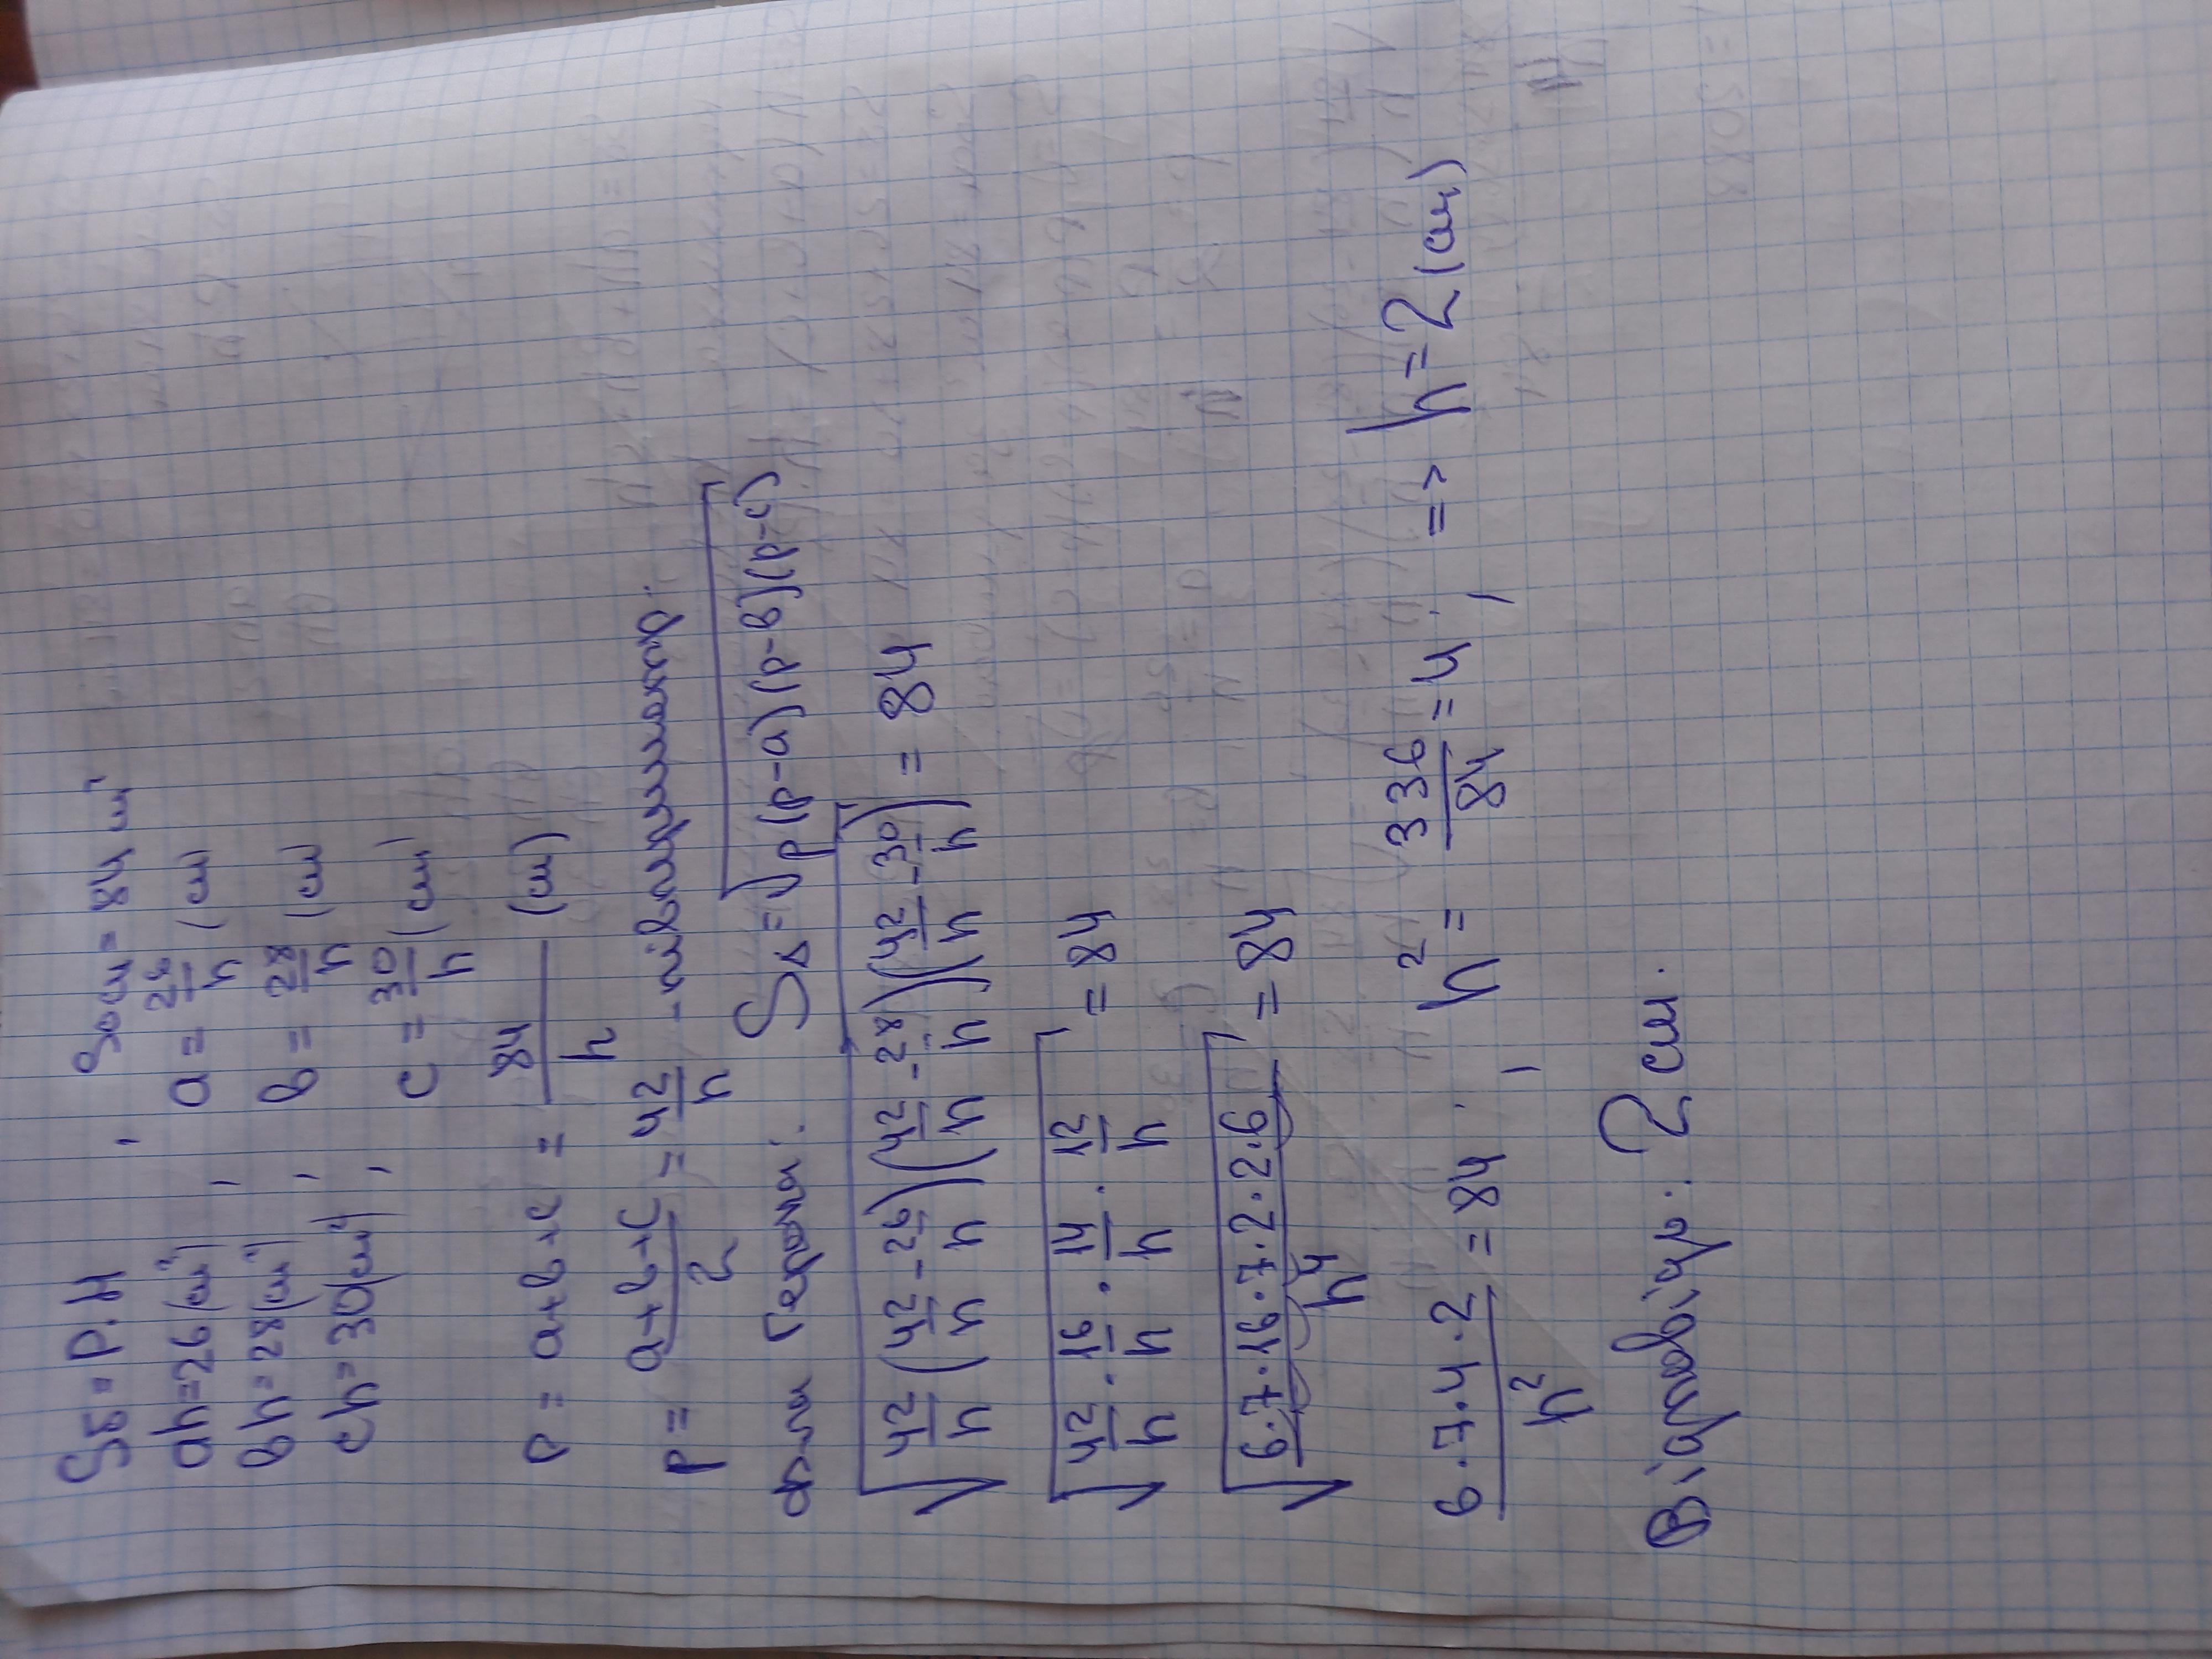 Sб = P·H, Sосн = 84 см²
ah = 26 (см²), a = 26/h (см)
bh = 28 (см²), b = 28/h (см)
ch = 30 (см²), c = 30/h (см)
P = a+b+c = 84/h (см)
p = (a+b+c)/2 = 42/h - півпериметр.
ф-ла Герона: S△ = √(p(p-a)(p-b)(p-c))
√(42/h (42/h - 26/h)(42/h - 28/h)(42/h - 30/h)) = 84
√(42/h · 16/h · 14/h · 12/h) = 84
√(6·7·16·7·2·2·6 / h⁴) = 84
6·7·4·2 / h² = 84; h² = 336/84 = 4; => h = 2 (см)
Відповідь: 2 см.